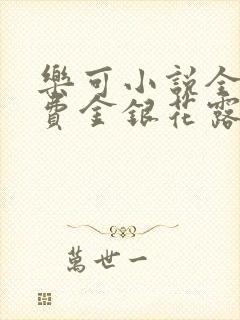 樂可小說全
費金銀花露
萬世一